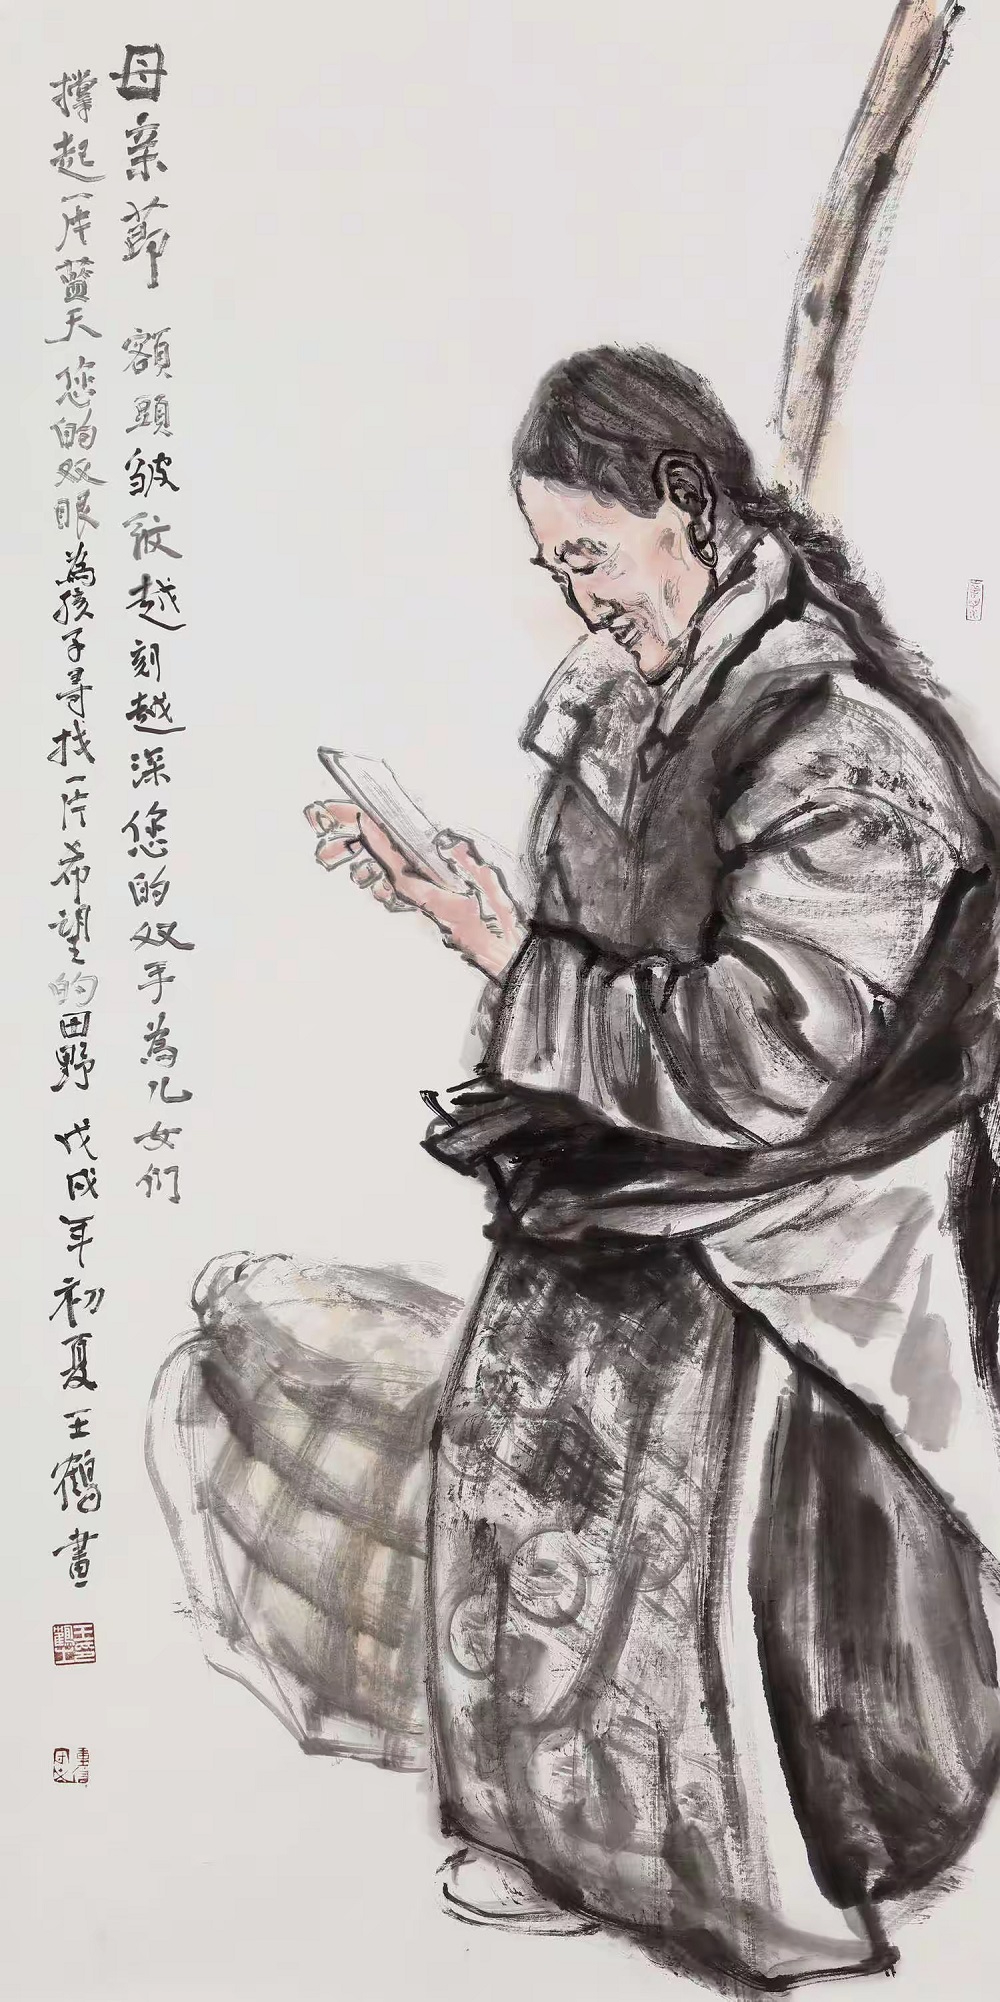 母亲節 額頭皱紋越刻越深您的双手為儿女们
撑起一片藍天您的双眼為孩子寻找一片希望的田野 戊戌年初夏王鶴畫